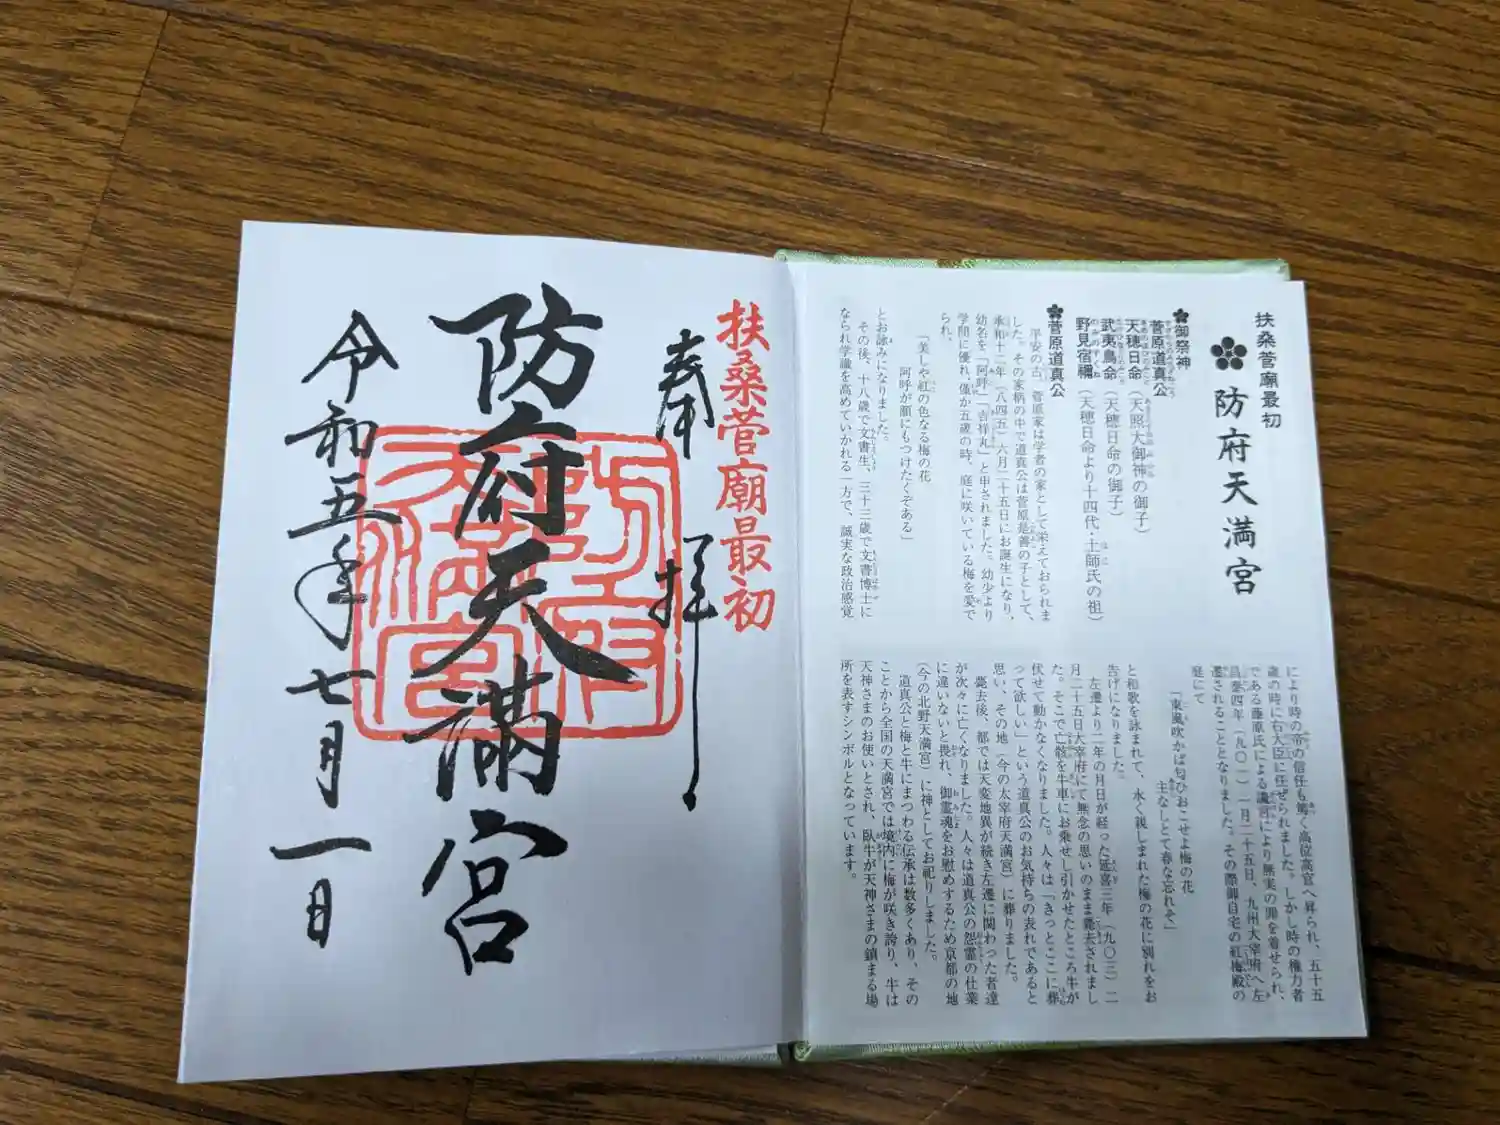 扶桑菅廟最初
防府天満宮
御祭神
菅原道真公
天穂日命（天照大御神の御子）
武夷鳥命（天穂日命の御子）
野見宿禰（天穂日命より十四代・土師氏の祖）
菅原道真公
平安の古、菅原家は学者の家として栄えておられま
した。その家柄の中で道真公は菅原是善の子として、
承和十二年（八四五）六月二十五日にお誕生になり、
幼名を「阿呼」「吉祥丸」と申されました。幼少より
学問に優れ、僅か五歳の時、庭に咲いている梅を愛で
られ、
「美しや紅の色なる梅の花
阿呼が顔にもつけたくぞある」
とお詠みになりました。
その後、十八歳で文書生、三十三歳で文書博士に
なられ学識を高めていかれる一方で、誠実な政治感覚
により時の帝の信任も篤く高位高官へ昇られ、五十五
歳の時に右大臣に任ぜられました。しかし時の権力者
である藤原氏による讒言により無実の罪を着せられ、
昌泰四年（九〇一）一月二十五日、九州大宰府へ左
遷されることとなりました。その際御自宅の紅梅殿の
庭にて
「東風吹かば匂ひおこせよ梅の花
主なしとて春な忘れそ」
と和歌を詠まれて、永く親しまれた梅の花に別れをお
告げになりました。
左遷より二年の月日が経った延喜三年（九〇三）二
月二十五日大宰府にて無念の思いのまま薨去されまし
た。そこで亡骸を牛車にお乗せし引かせたところ牛が
伏せて動かなくなりました。人々は「きっとここに葬
って欲しい」という道真公のお気持ちの表れであると
思い、その地（今の太宰府天満宮）に葬りました。
薨去後、都では天変地異が続き左遷に関わった者達
が次々に亡くなりました。人々は道真公の怨霊の仕業
に違いないと畏れ、御霊魂をお慰めするため京都の地
（今の北野天満宮）に神としてお祀りしました。
道真公と梅と牛にまつわる伝承は数多くあり、その
ことから全国の天満宮では境内に梅が咲き誇り、牛は
天神さまのお使いとされ、臥牛が天神さまの鎮まる場
所を表すシンボルとなっています。
扶桑菅廟最初
奉拝
防府天満宮
防府天満宮
令和五年七月一日